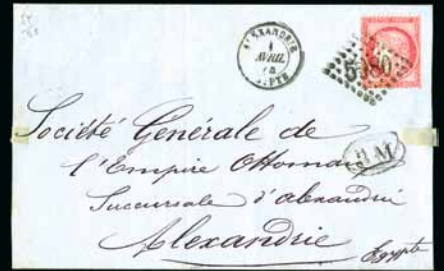 ALEXANDRIE
1
AVRIL
EGYPTE
5080
Société Générale de
l'Empire Ottoman
B M
Succursale d'alexandrie
Alexandrie
Egypte